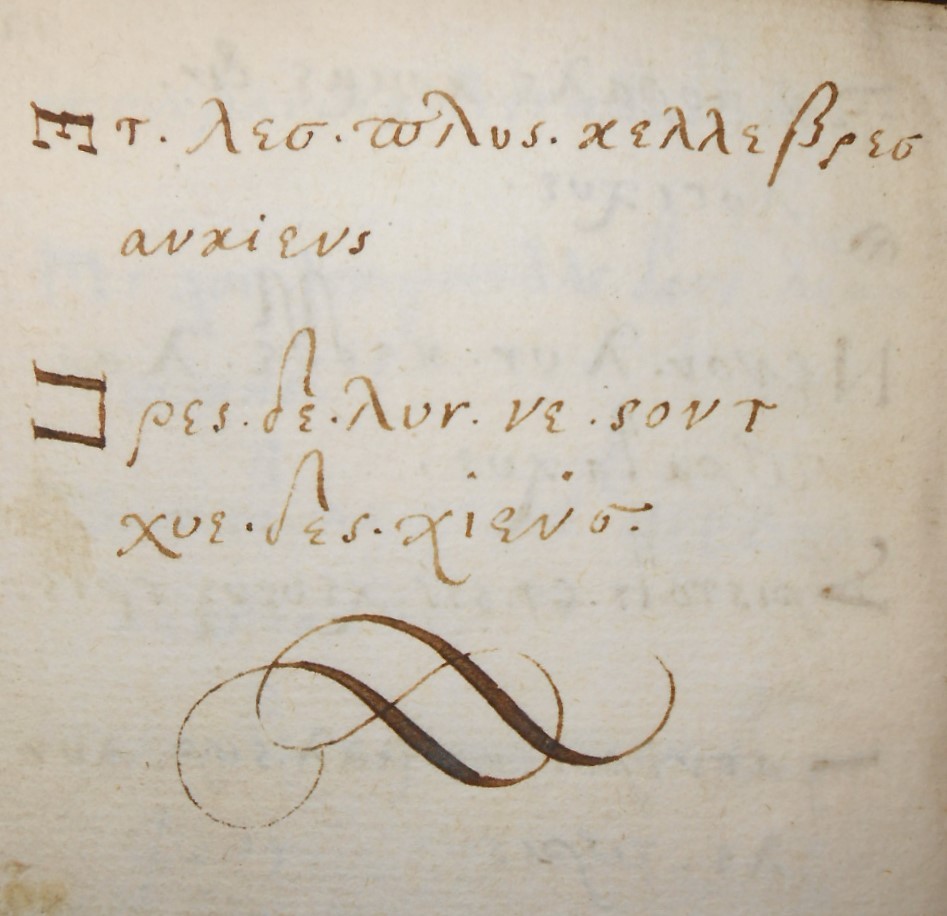 Ετ. λεσ. ϖλυς. κελλεβρεσ
ανκιενς
Πρες. δε. λυν. νε. ςοντ
χυε. δες. χιενσ.